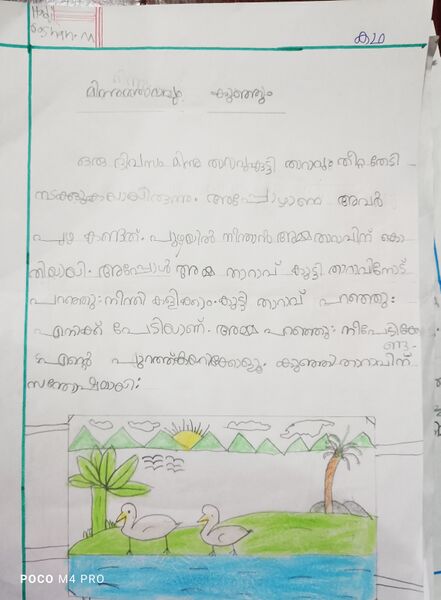 Hadi
Roshan. M
കഥ
മിന്നുതാറാവും കുഞ്ഞും
ഒരു ദിവസം മിന്നു താറാവുംകുട്ടി താറാവും തീറ്റ തേടി
നടക്കുകയായിരുന്നു. അപ്പോഴാണ് അവർ
പുഴ കണ്ടത്. പുഴയിൽ നീന്താൻ അമ്മ താറാവിന് കൊ
തിയായി. അപ്പോൾ അമ്മ താറാവ് കുട്ടി താറാവിനോട്
പറഞ്ഞു: നീന്തി കളിക്കാം. കുട്ടി താറാവ് പറഞ്ഞു:
എനിക്ക് പേടിയാണ്. അമ്മ പറഞ്ഞു: നീ പേടിക്കേ
ണ്ട.
എന്റെ പുറത്ത്കയറിക്കോളൂ. കുഞ്ഞി താറാവിന്
സന്തോഷമായി.
POCO M4 PRO